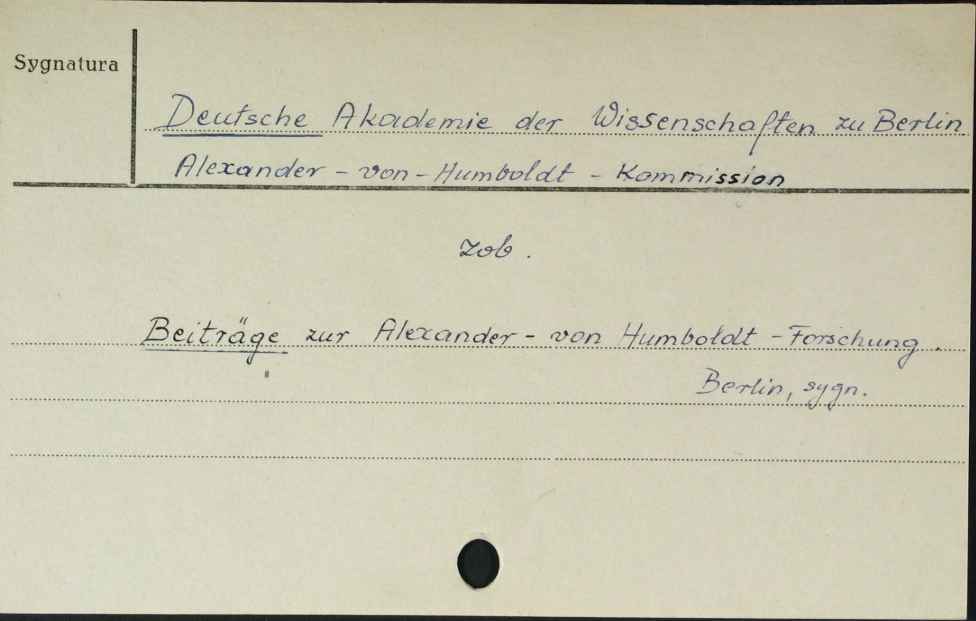 Sygnatura
Deutsche Akademie der Wissenschaften zu Berlin
Alexander - von - Humboldt - Kommission
zob.
Beiträge zur Alexander - von Humboldt - Forschung.
Berlin, sygn.